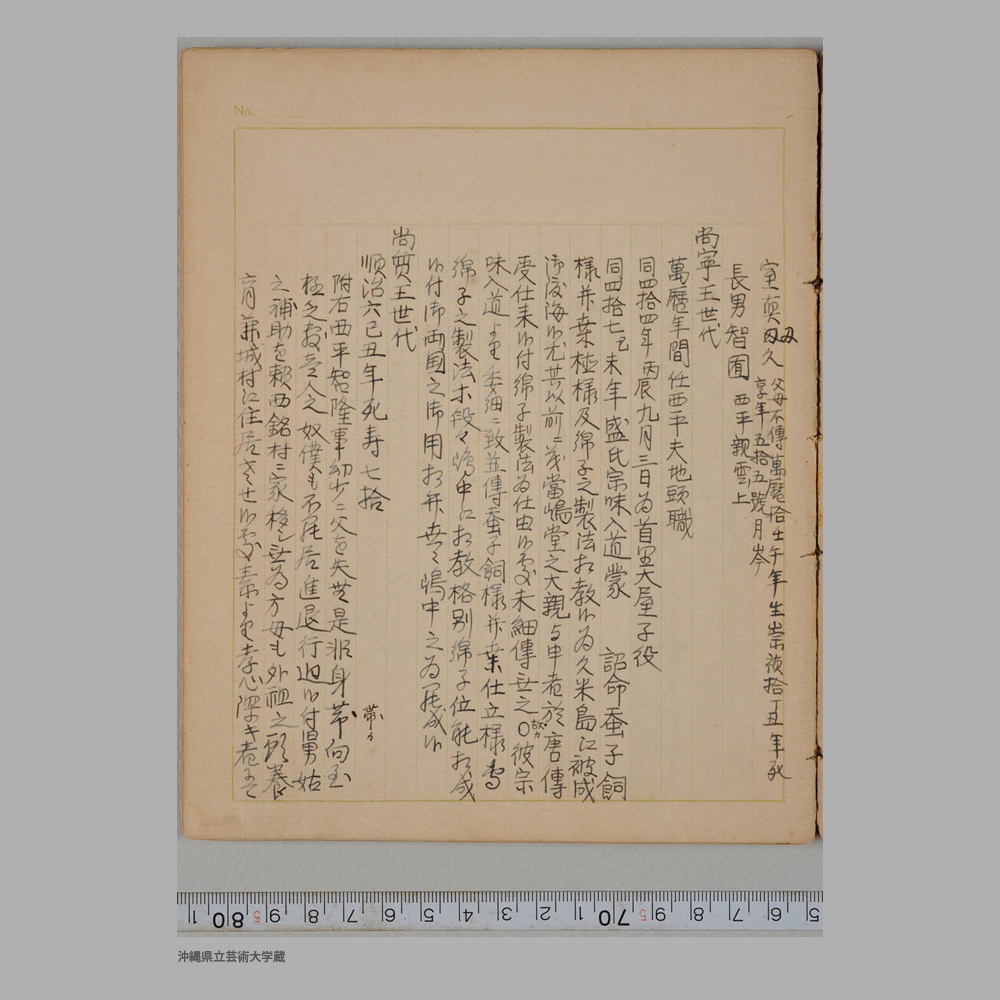 室真 久 父母不傳萬暦拾壬午年生崇禎拾丁丑年死
享年五拾五號月岑
長男智囿 西平親雲上
尚寧王世代
萬暦年間任西平夫地頭職
同四拾四年丙辰九月三日為首里大屋子役
同四拾七己未年盛氏宗味入道蒙 詔命蚕子飼
様并桒極様及綿子之製法相教候為久米島江被成
御渡海候尤其以前ニ茂當嶋堂之大親与申者於唐傳
受仕来候付綿子製法為仕由候處未細傳無之〇彼宗
味入道より委細ニ致並傳蚕子飼様并桒仕立様
綿子之製法ホ段々嶋中江相教格別綿子位能相成
候付御両国之御用相弁 嶋中之為 成候
尚質王世代
順治六己丑年死寿七拾
附右西平智隆事幼少ニ父を失 是非身帯向至
極乏 人之奴僕 居進退行迫候付舅姑
之補助を頼西銘村ニ家移 為方母も外祖之 養
育 城村江住居させ候處素より孝心深キ者
No.
沖縄県立芸術大学蔵